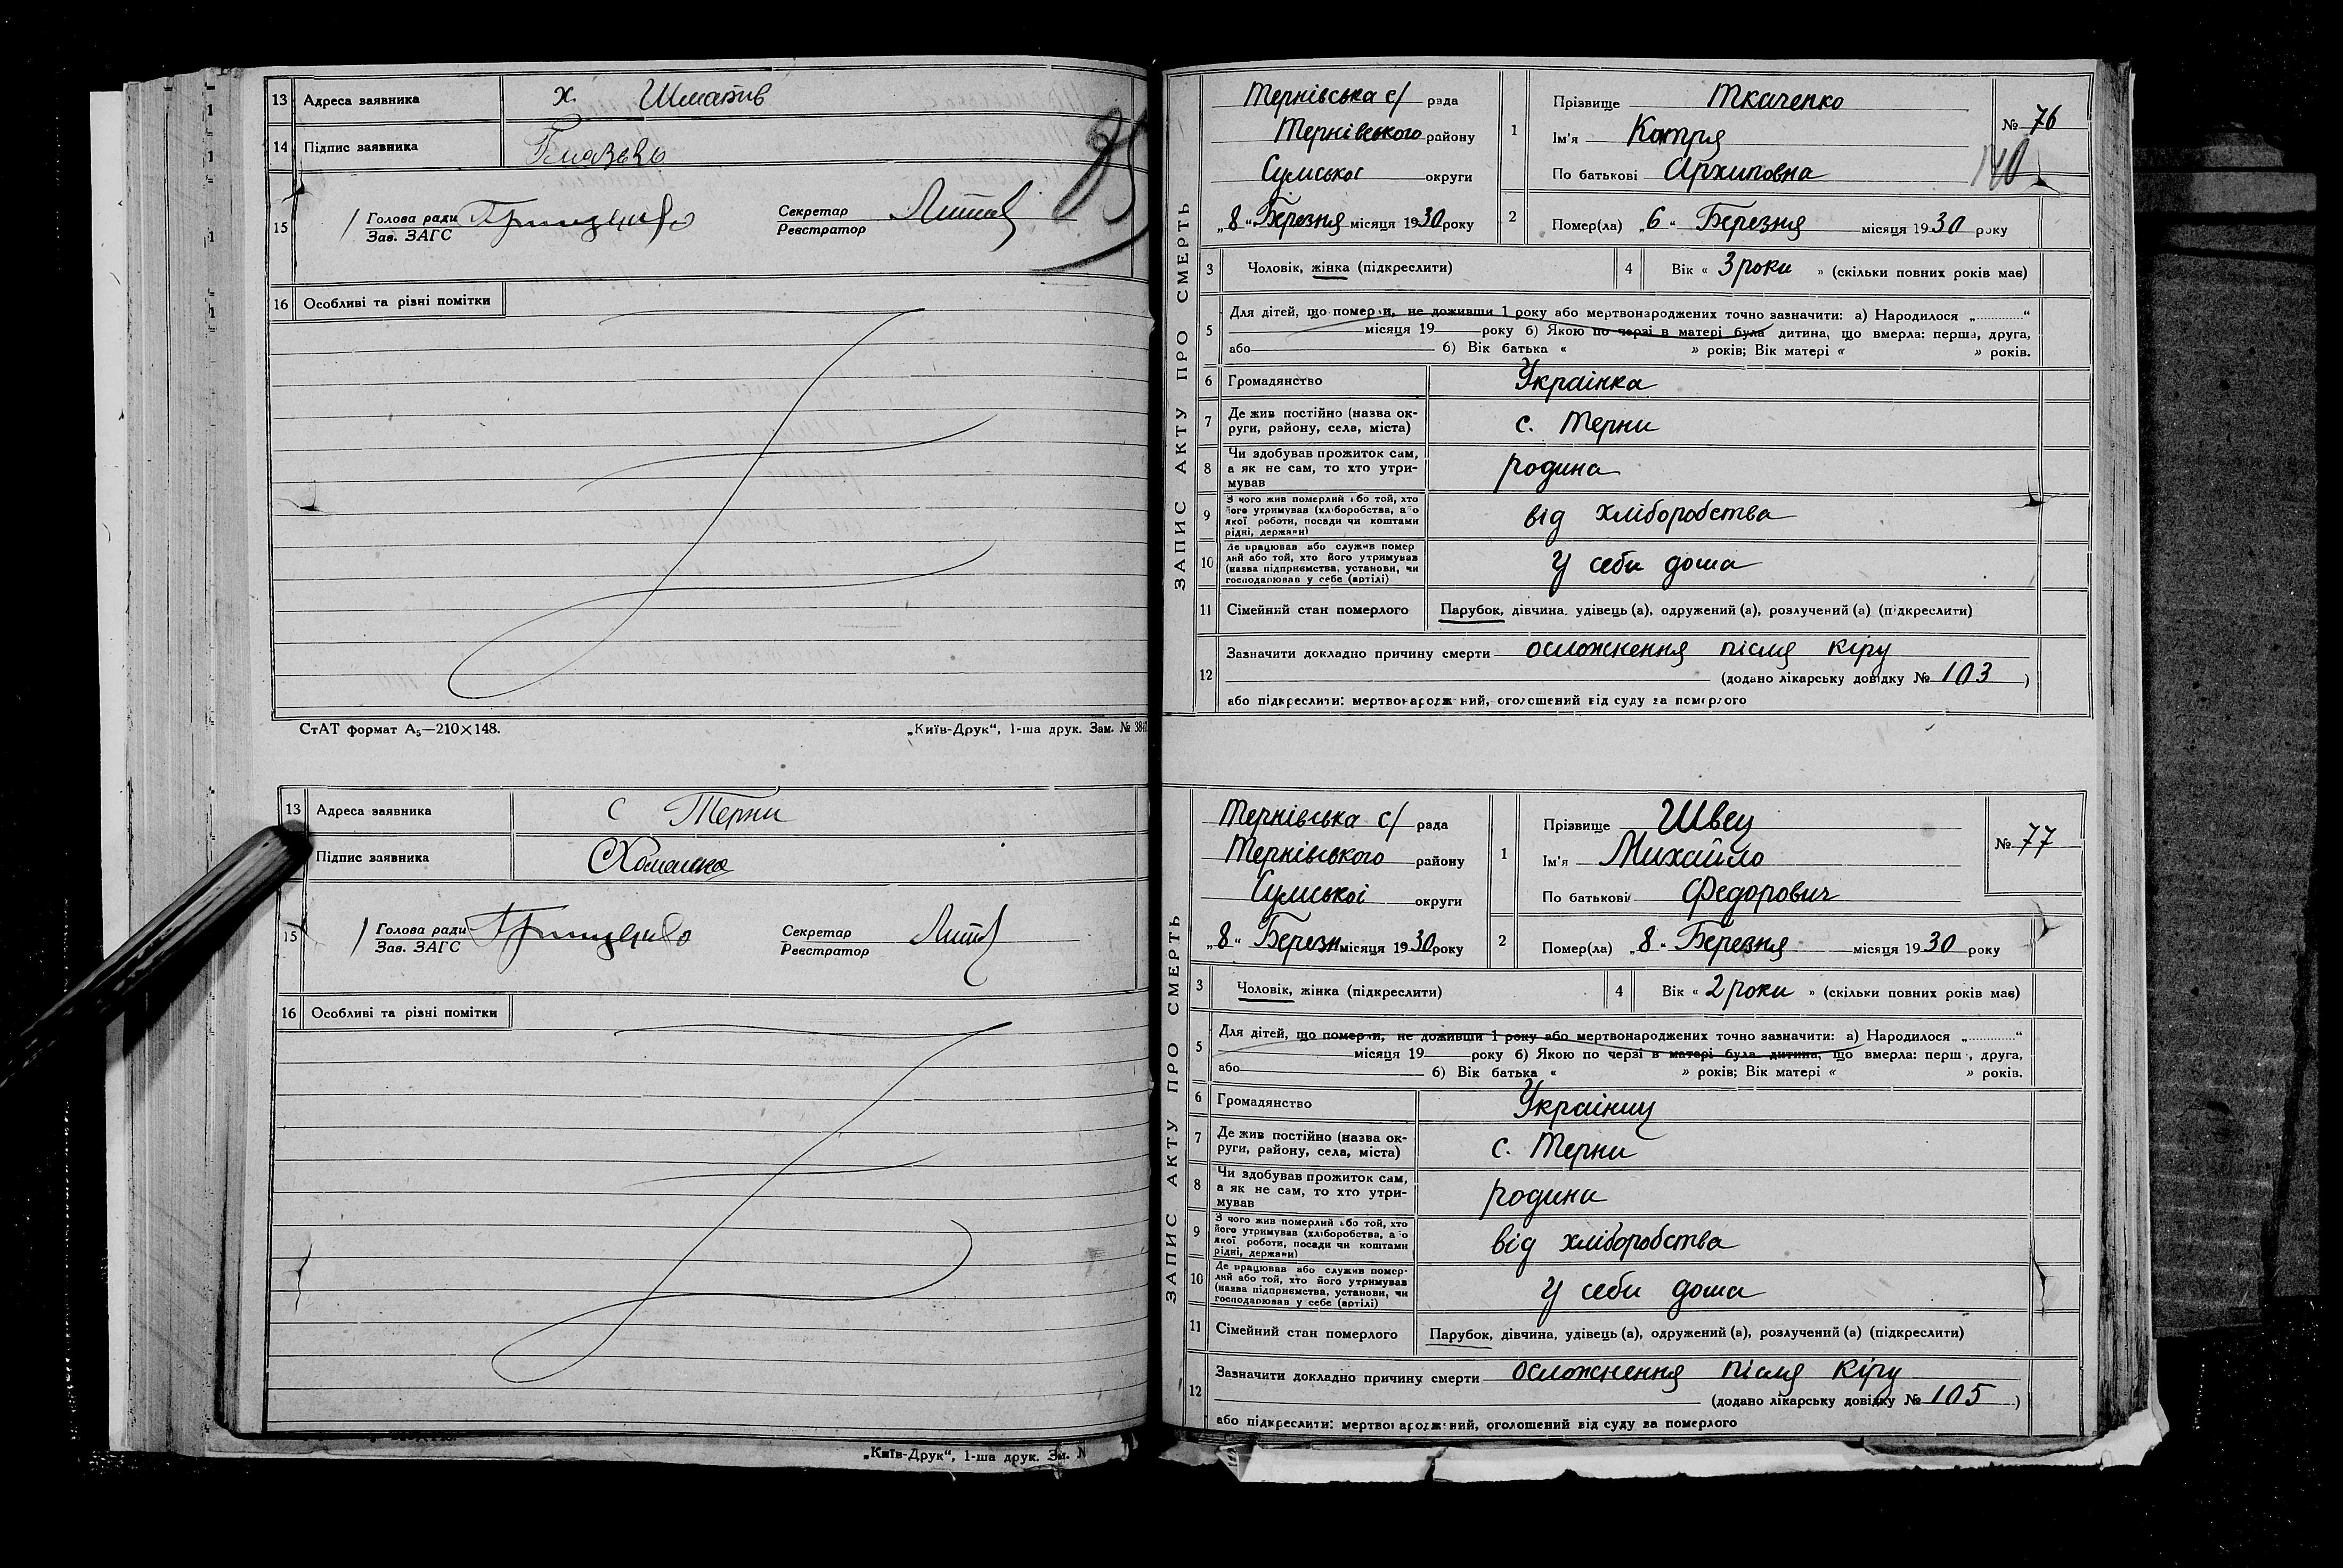 13 Адреса заявника х. Шматів
14 Підпис заявника
15 Голова ради Секретар
Зав. ЗАГС Реєстратор
16 Особливі та різні помітки
СтАТ формат А₅—210×148. „Київ-Друк“, 1-ша друк. Зам. №
13 Адреса заявника с Терни
Підпис заявника
15 Голова ради Секретар
Зав. ЗАГС Реєстратор
16 Особливі та різні помітки
„Київ-Друк“, 1-ша друк. Зм. N
ЗАПИС АКТУ ПРО СМЕРТЬ
Тернівська с/ рада
Тернівського району
Сумської округи
„8“ Березня місяця 1930 року
1 Прізвище Ткаченко
Ім'я Катря
По батькові Архиповна
№ 76
140
2 Помер(ла) „6“ Березня місяця 1930 року
3 Чоловік, жінка (підкреслити) 4 Вік « 3 роки » (скільки повних років має)
5 Для дітей, що померли, не доживши 1 року або мертвонароджених точно зазначити: а) Народилося „............“
місяця 19 року б) Якою по черзі в матері була дитина, що вмерла: перша, друга,
або б) Вік батька « » років; Вік матері « » років.
6 Громадянство Украінка
7 Де жив постійно (назва ок-
руги, району, села, міста) с. Терни
8 Чи здобував прожиток сам,
а як не сам, то хто утри-
мував родина
9 З чого жив померлий або той, хто
його утримував (хліборобства, або
якої роботи, посади чи коштами
рідні, держави) від хліборобства
10 Де працював або служив помер
лий або той, хто його утримував
(назва підприємства, установи, чи
господарював у себе (артілі) У себи дома
11 Сімейний стан померлого Парубок, дівчина, удівець (а), одружений (а), розлучений (а) (підкреслити)
12 Зазначити докладно причину смерти осложнення після кіру
(додано лікарську довідку № 103 )
або підкреслити: мертвонароджений, оголошений від суду за померлого
ЗАПИС АКТУ ПРО СМЕРТЬ
Тернівська с/ рада
Тернівського району
Сумської округи
„8“ Березн місяця 1930 року
1 Прізвище Швец
Ім'я Михайло
По батькові Федорович
№ 77
2 Помер(ла) „8“ Березня місяця 1930 року
3 Чоловік, жінка (підкреслити) 4 Вік « 2 роки » (скільки повних років має)
5 Для дітей, що померли, не доживши 1 року або мертвонароджених точно зазначити: а) Народилося „............“
місяця 19 року б) Якою по черзі в матері була дитина, що вмерла: перш , друга,
або б) Вік батька « » років; Вік матері « » років.
6 Громадянство Украінец
7 Де жив постійно (назва ок-
руги, району, села, міста) с. Терни
8 Чи здобував прожиток сам,
а як не сам, то хто утри-
мував родина
9 З чого жив померлий або той, хто
його утримував (хліборобства, або
якої роботи, посади чи коштами
рідні, держави) від хліборобства
10 Де працював або служив помер-
лий або той, хто його утримував
(назва підприємства, установи, чи
господарював у себе (артілі) У себи дома
11 Сімейний стан померлого Парубок, дівчина, удівець (а), одружений (а), розлучений (а) (підкреслити)
12 Зазначити докладно причину смерти осложнення після кіру
(додано лікарську довідку № 105 )
або підкреслити: мертвонароджений, оголошений від суду за померлого